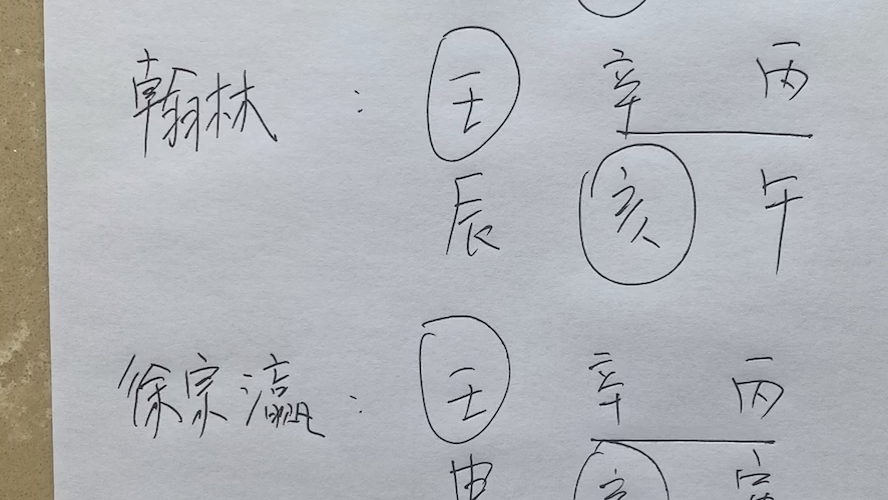 翰林 : 壬 辛 丙
辰 亥 午
徐宗瀛 : 壬 辛 丙
申 亥 寅